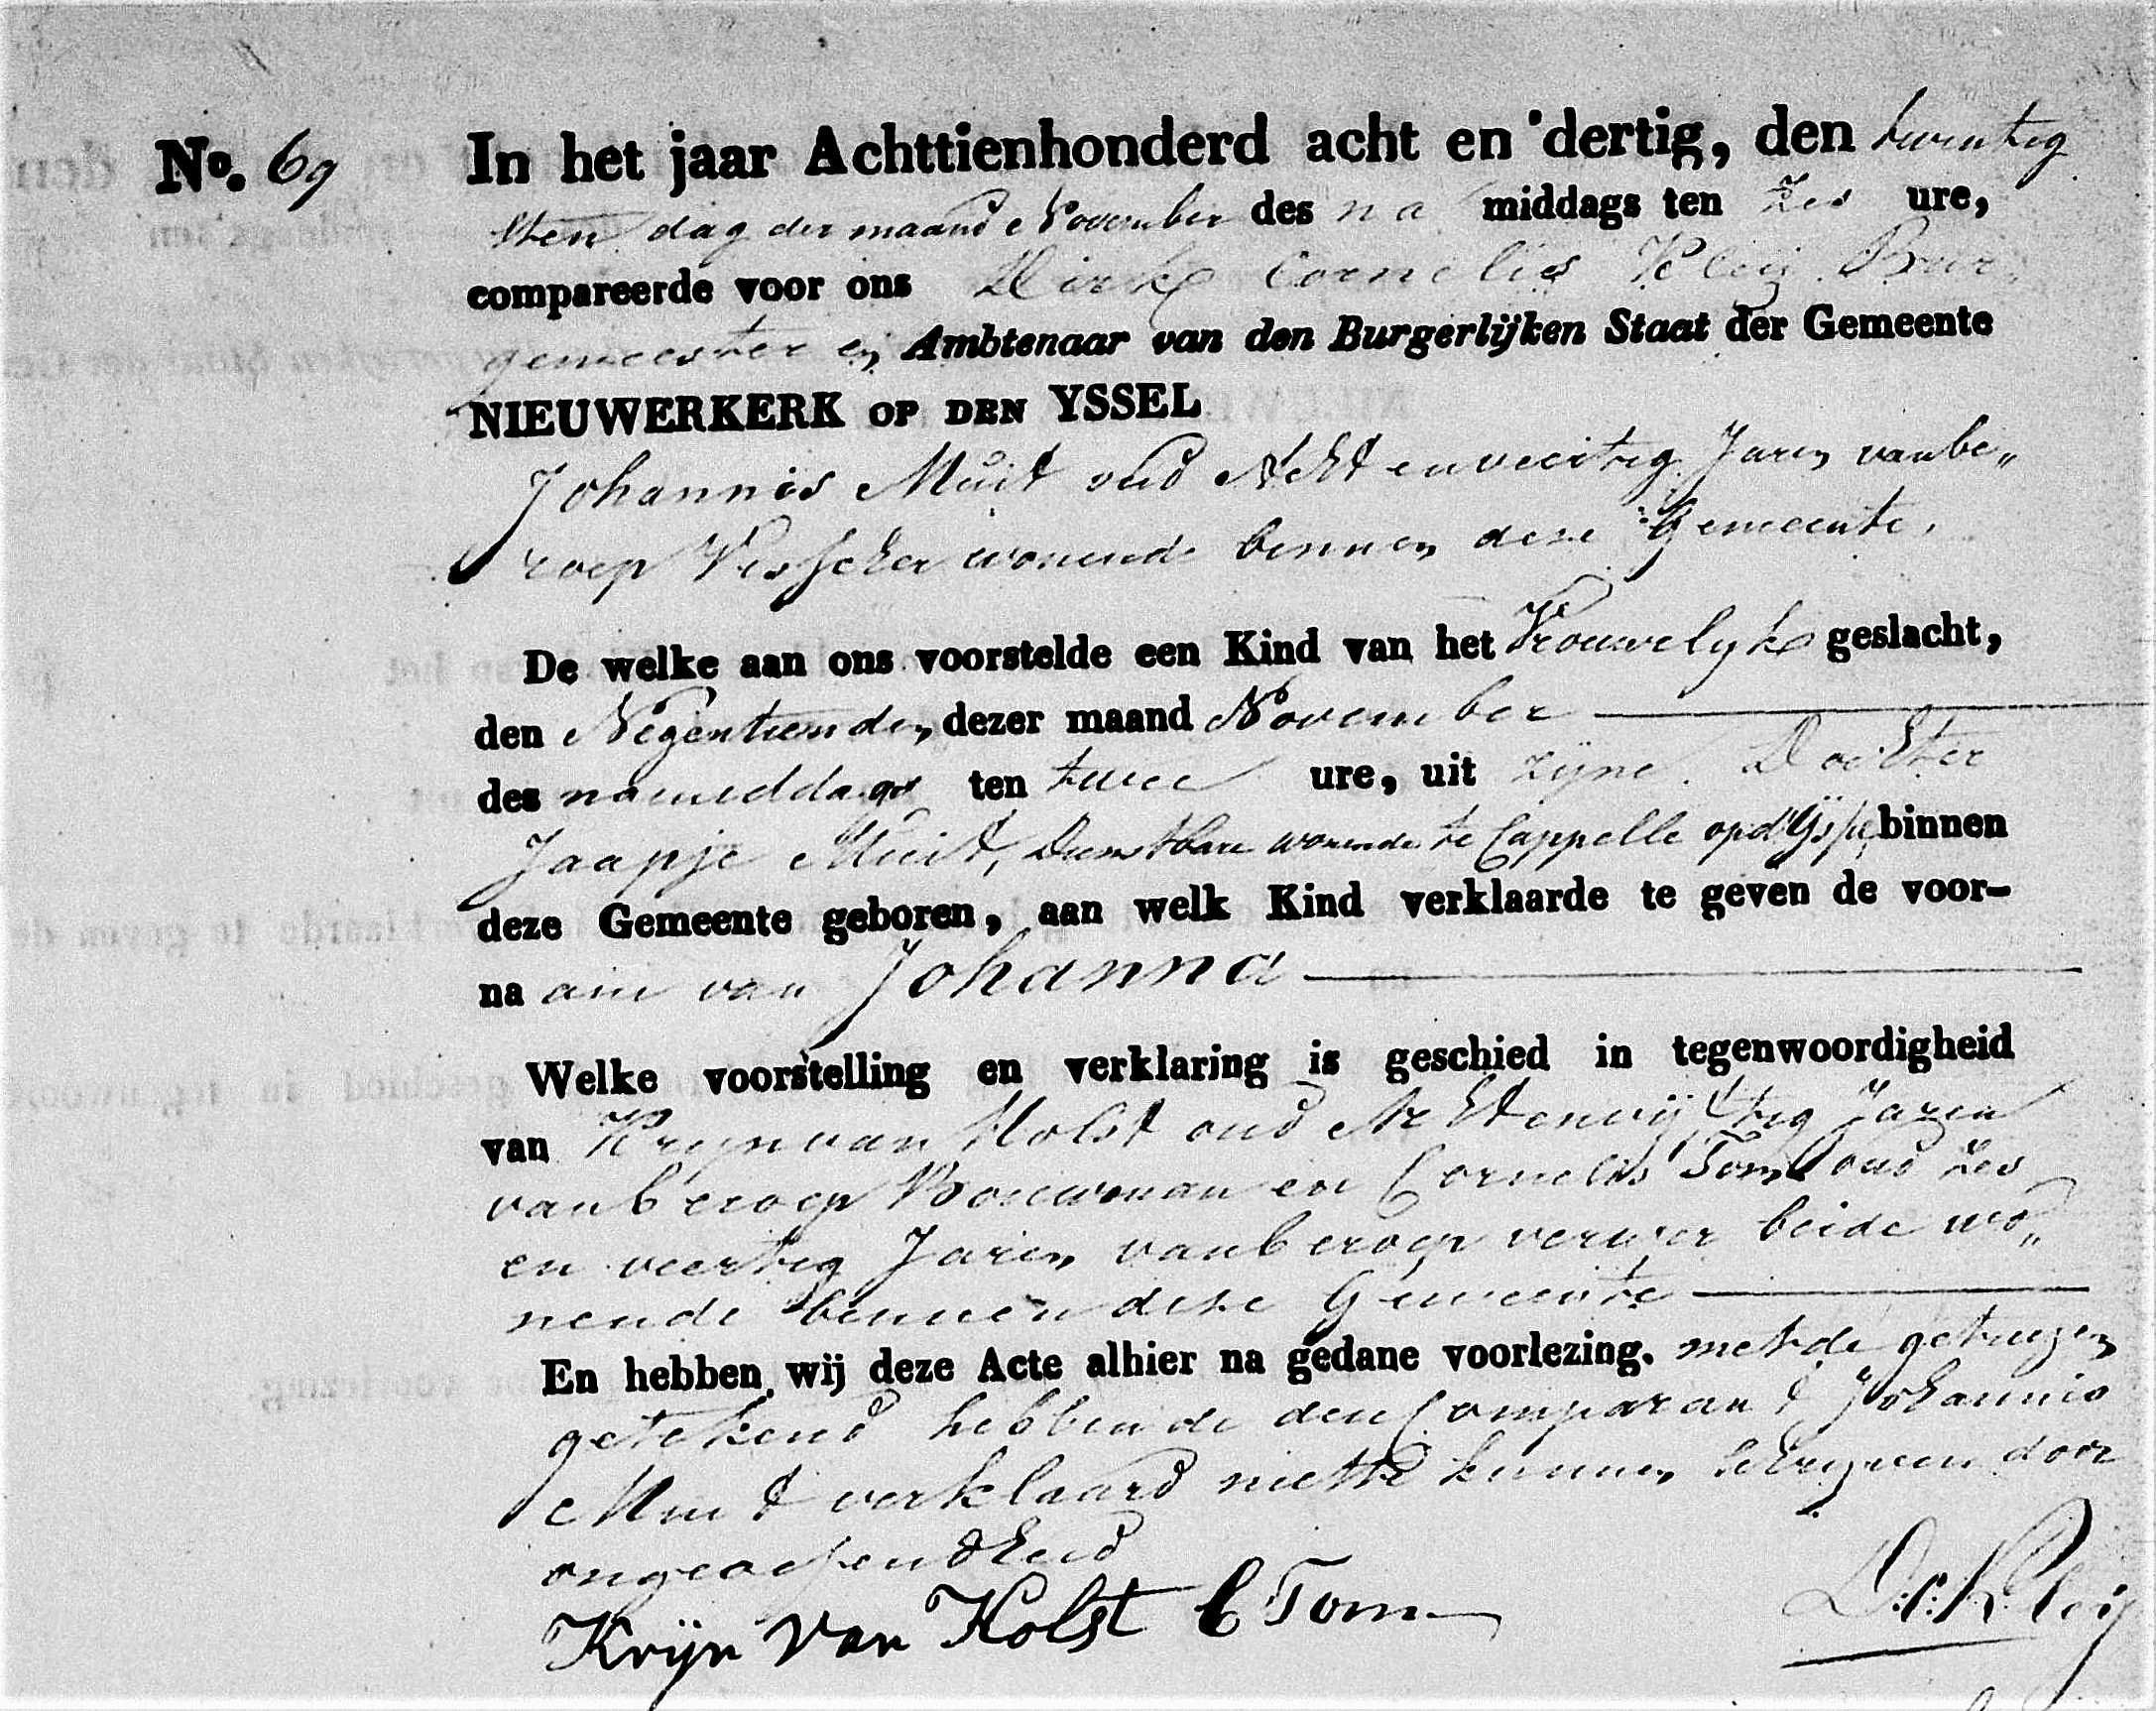 No. 69 In het jaar Achttienhonderd acht en dertig, den twintig
sten dag der maand November des na middags ten zes ure,
compareerde voor ons Dirk Cornelis Kleij Bur
gemeester en Ambtenaar van den Burgerlijken Staat der Gemeente
NIEUWERKERK OP DEN YSSEL
Johannis Muit oud Acht en veertig Jaren van be„
roep Visscher wonende binnen deze Gemeente.
De welke aan ons voorstelde een Kind van het Vrouwelyk geslacht,
den Negentienden dezer maand November
des namiddags ten twee ure, uit zyne Dochter
Jaapje Muit, Dienstbare wonende te Cappelle op d'IJssel binnen
deze Gemeente geboren, aan welk Kind verklaarde te geven de voor-
na am van Johanna
Welke voorstelling en verklaring is geschied in tegenwoordigheid
van Kryn van Holst oud Achtenvijftig Jaren
van beroep Bouwman en Cornelis Tom oud zes
en veertig Jaren van beroep verwer beide wo„
nende binnen deze Gemeente
En hebben wij deze Acte alhier na gedane voorlezing. met de getuigen
getekend hebbende den Comparant Johannis
Muit verklaard niet te kunnen schryven door
ongeoefendheid
Krijn van Holst C Tom D:C: Kleij